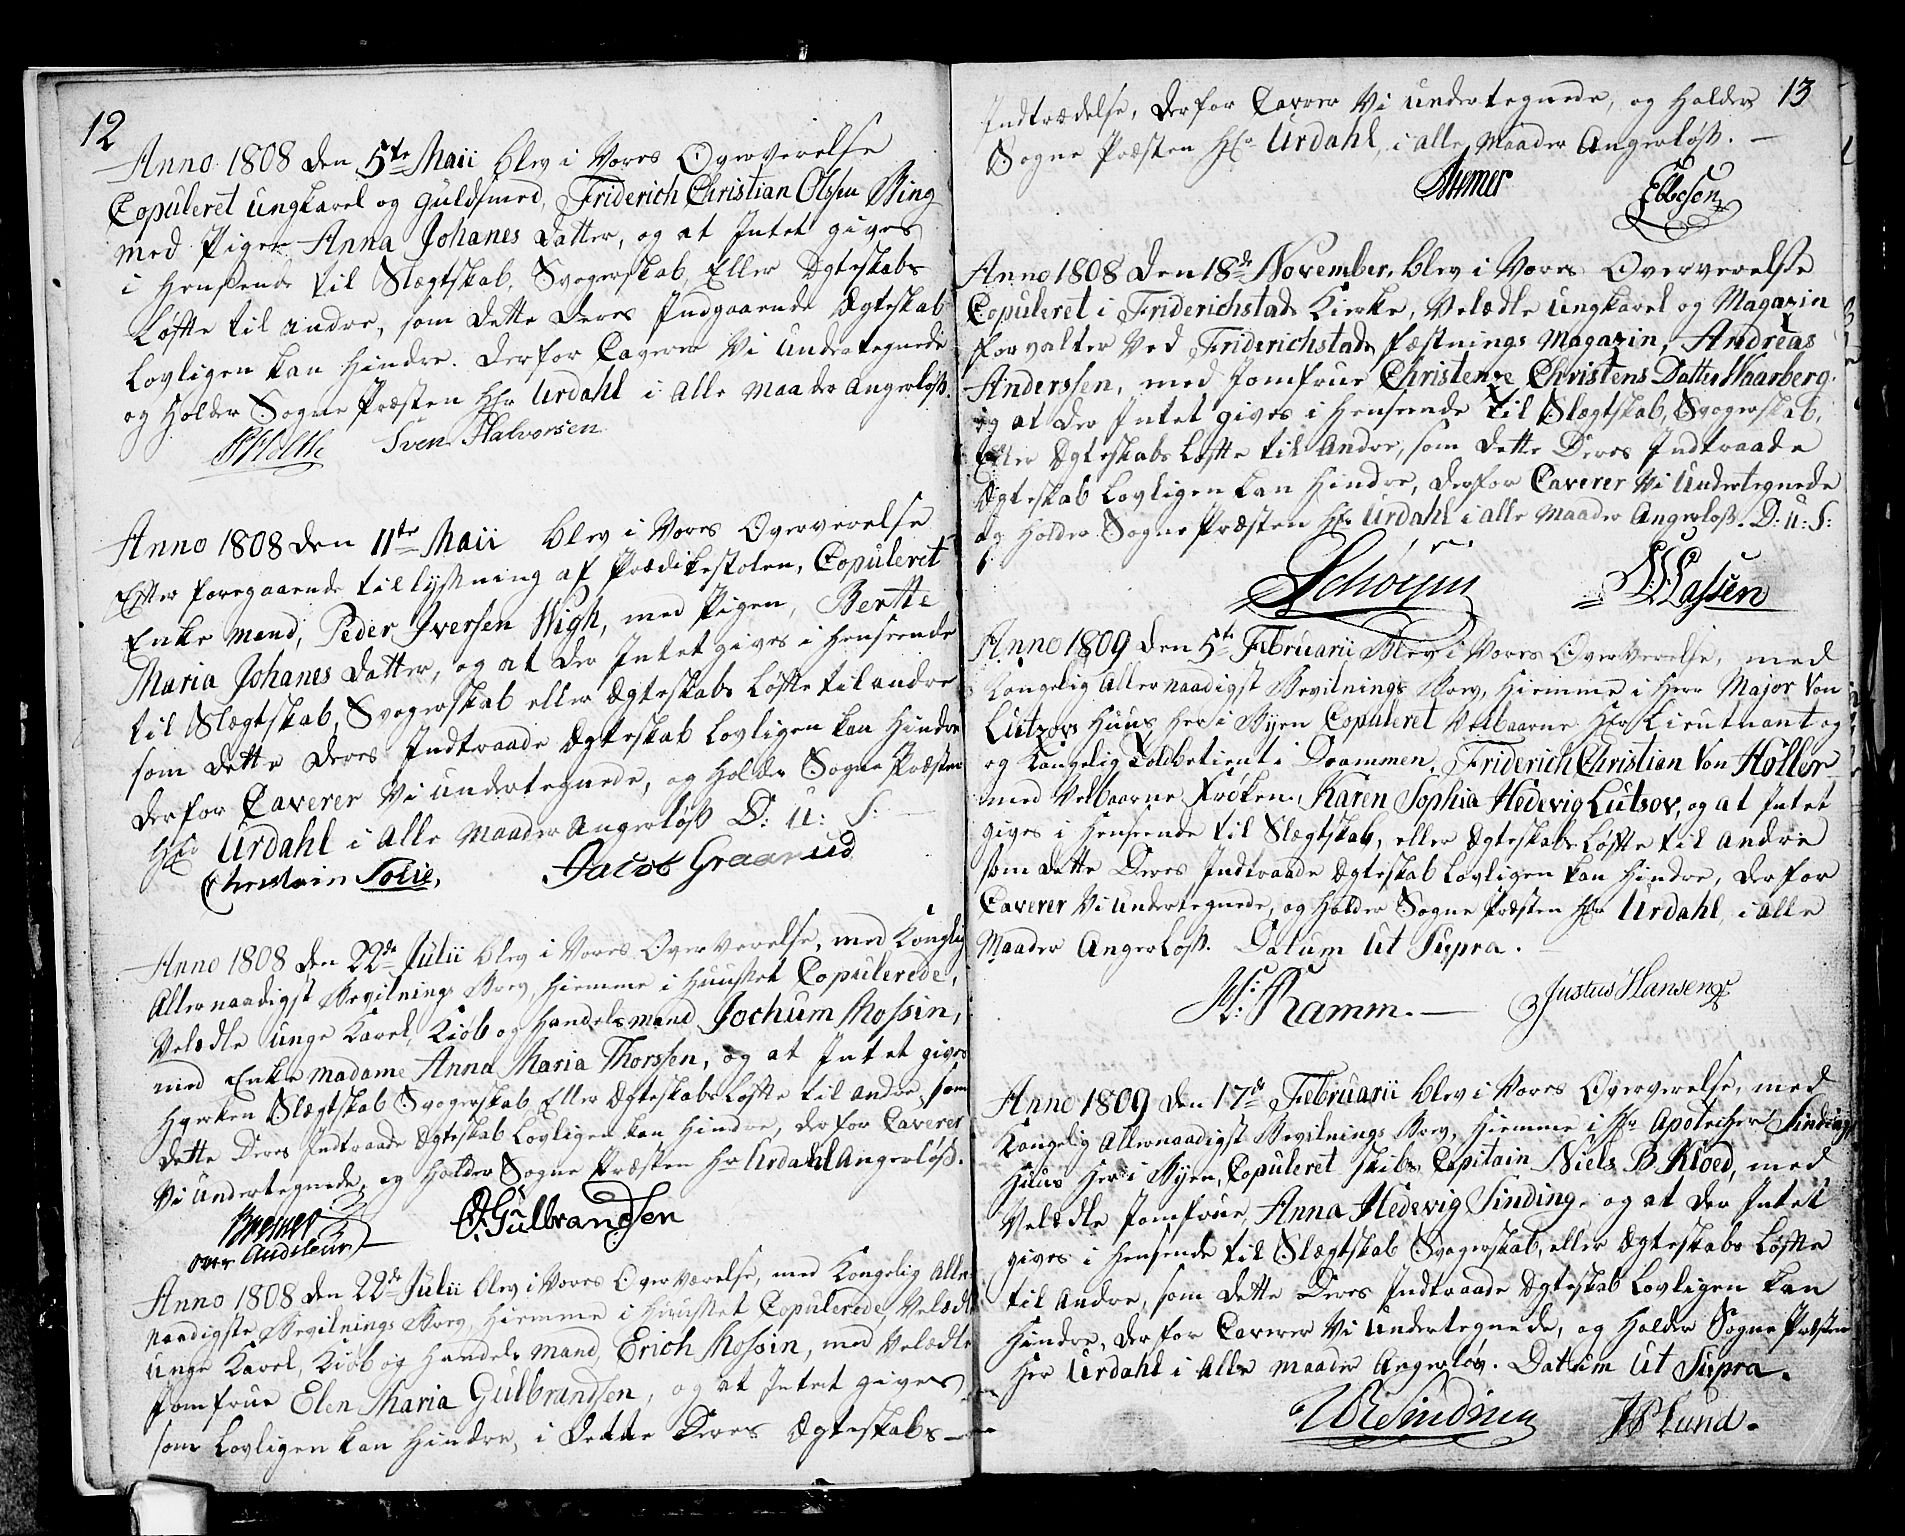 12
Anno 1808 den 5te Maii blev i Vores Oververelse
Copuleret ungkarel og Guldsmed, Friderich Christian Olsen Ring
med Pigen Anna Johanes datter, og at Intet gives
i Hensende til Slægtskab, Svogerskab, Eller Ægteskabs
Løfte til andre, som dette deres Indgaaende Ægteskab
Lovligen kan Hindre. derfor Caverer Vi undertegnede
og Holder Sogne Præsten Hr Urdahl i alle maader Angerløß.
Sven Halvorsen
Anno 1808 den 11te Maii blev i Vores Oververelse
Efter foregaaende tillysning af Prædikestolen, Copuleret
Enke mand, Peder Iversen Wigh, med Pigen, Berthe
Maria Johanes datter, og at der Intet gives i Henseende
til Slægtskab, Svogerskab eller Ægteskabs Løfte til andre
som dette deres Indtraade Ægteskab Lovligen kan Hindre
derfor Caverer Vi undertegnede, og Holder Sogne Præsten
Hr Urdahl i alle maader Angerløß D: u: S:
Christain Solie, Jacob Graarud
Anno 1808 den 22de Julii blev i Vores Oververelse, med Konglig
Allernaadigst Bevilnings Brev, Hiemme i Huuset Copulerede,
Velædle unge Karel, Kiøb og Handelsmand Jochum Mossin,
med Enke madame Anna Maria Thorssen, og at Intet gives
Hverken Slægtskab Svogerskab Eller Ægteskabs Løfte til andre, som
dette Deres Indtraade Ægteskab Lovligen kan Hindre, derfor Caverer
Vi undertegnede, og Holder Sogne Præsten Hr Urdahl Angerløß.
Bremer O. Gulbrandsen
over Auditeur
Anno 1808 den 22de Julii blev i Vores Overværelse, med Kongelig Aller
naadigste Bevilnings Brev, Hiemme i Huuset Copulerede, Velædle
unge Karel, Kiøb og Handels mand, Erich Mossin, med Velædle
Jomfrue Elen Maria Gulbrandsen, og at Intet gives
som Lovligen kan Hindre, i dette Deres Ægteskabs
13
Indtrædelse, derfor Caverer Vi undertegnede, og Holder
Sogne Præsten Hr Urdahl, i alle Maader Angerløß.
Bremer Ebbesen
Anno 1808 Den 18de November, blev i Vores Oververelse
Copuleret i Friderichstads Kirke, Velædle ungkarel og Magazin
forvalter Ved Friderichstads fæstnings Magazin, Andreas
Anderssen, med Jomfrue Christenze Christens Datter Haarberg.
og at der Intet gives i Henseende til Slægtskab, Svogerskab,
Eller Ægteskabs Løfte til Andre, som dette Deres Indtraade
Ægteskab Lovligen kan Hindre, derfor Caverer Vi Undertegnede
og Holder Sogne Præsten Hr Urdahl i alle Maader Angerløß. D: u: S:
Lassen
Anno 1809 den 5te Februarii blev i Vores Oververelse, med
Kongelig Allernaadigst Bevilnings Brev, Hiemme i Herr Major Von
Lützovs Huus her i Byen Copuleret Velbaarne Hr Lieutnant og
og Kongelig Toldbetient i Drammen, Friderich Christian Von Höller
med Velbaarne Frøken, Karen Sophia Hedevig Lützov, og at Intet
gives i Henseende til Slægtskab, eller Ægteskabs Løfte til Andre
som dette Deres Indtraade Ægteskab Lovligen kan Hindre, derfor
Caverer Vi undertegnede, og Holder Sogne Præsten Hr Urdahl, i alle
Maader Angerløß. Datum Ut Supra.
Ramm. Justus Hansen
Anno 1809 den 17de Februarii blev i Vores Oververelse, med
Kongelig Allernaadigst Bevilnings Brev, Hiemme i Hr Apotecher Sindings
Huus Her i Byen, Copuleret Skibs Capitain Niels B. Kloed, med
Velædle Jomfrue, Anna Hedevig Sinding, og at der Intet
gives i Hensende til Slægtskab Svogerskab, eller Ægteskabs Løfte
til Andre, som dette Deres Indtraade Ægteskab Lovligen kan
Hindre, derfor Caverer Vi undertegnede, og Holder Sogne Præsten
Her Urdahl i Alle maader Angerløs. Datum Ut Supra.
Sinding Lund.